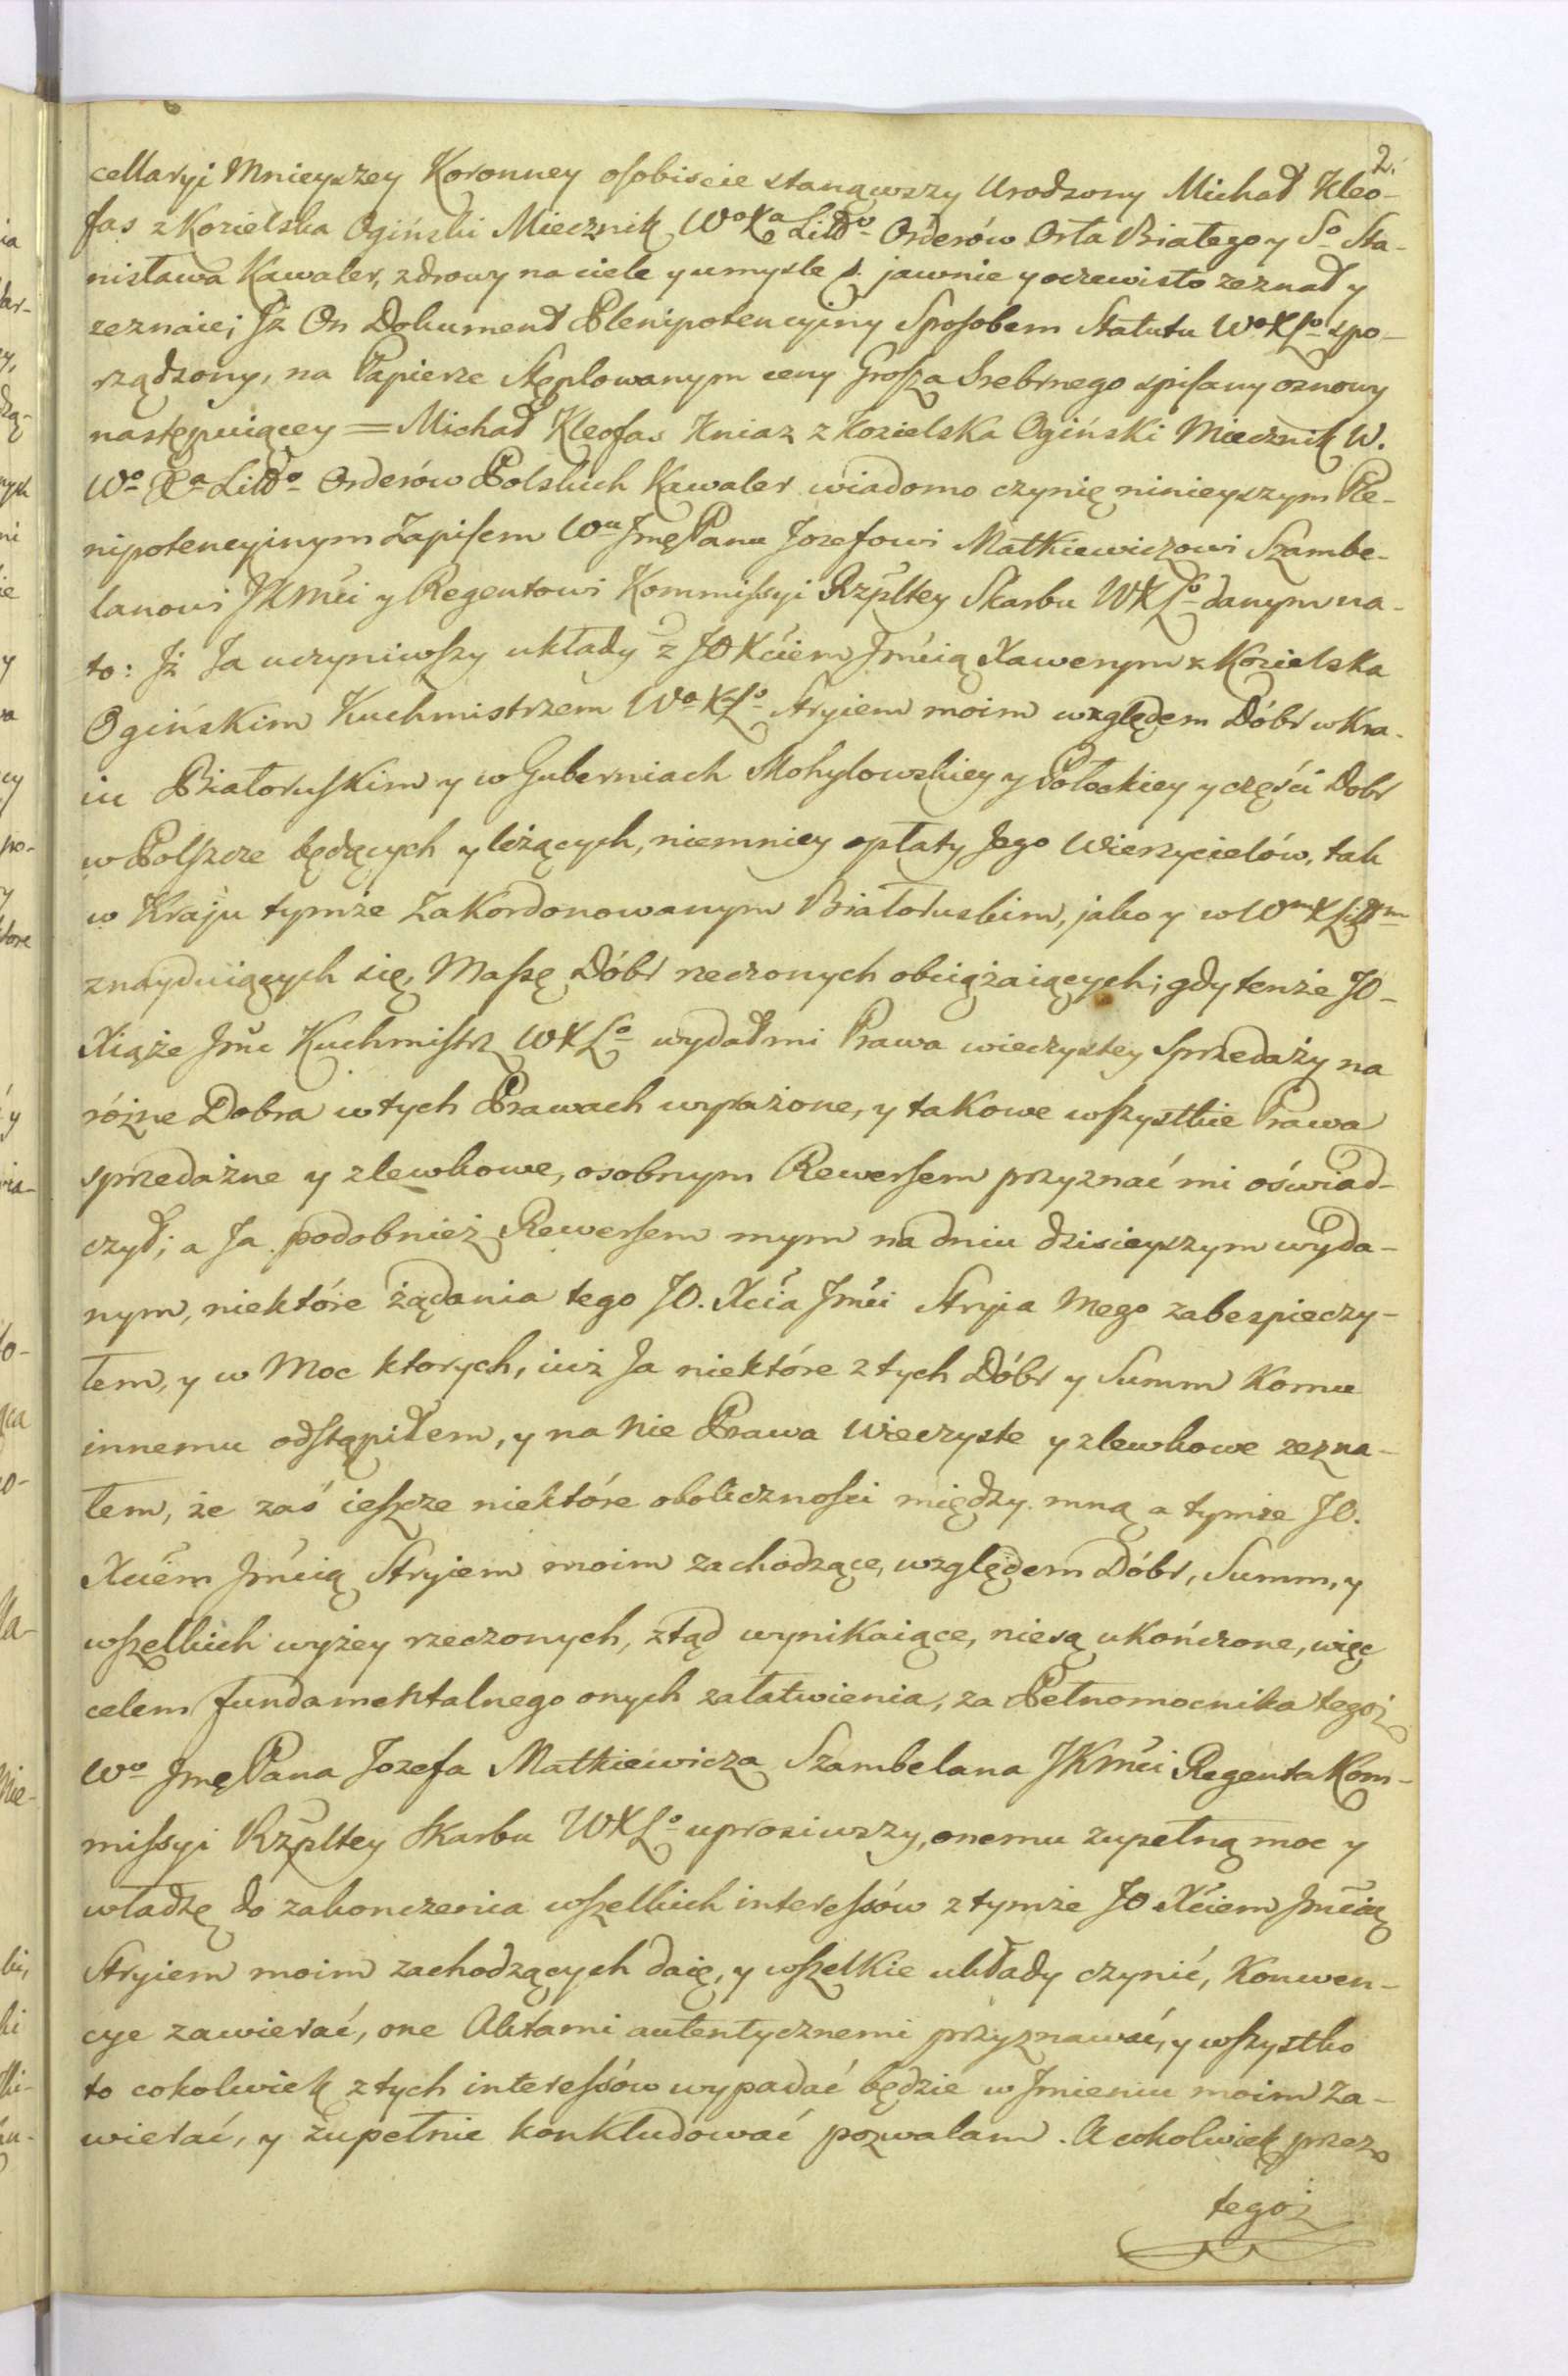 2.
cellaryi Mnieyszey Koronney osobiscie stanąwszy Urodzony Michał Kleo-
fas z Kozielska Ogiński Miecznik Wo Xa Littо Orderów Orła Białego y So Sta-
nisława Kawaler, zdrowy na ciele y umysle jawnie y oczewisto zeznał y
zeznaie; Jż On Dokument Plenipotencyiny Sposobem Statutu Wo XLo spo-
rządzony, na Papierze Stęplowanym ceny Grosza Srebrnego spisany osnowy
następuiącey = Michał Kleofas Kniaz z Kozielska Ogiński Miecznik W.
Wo Xa Litto Orderów Polskich Kawaler wiadomo czynię ninieyszym Ple-
nipotencyinym Zapisem Wu Jmę Panu Jozefowi Małkiewiczowi Szambe-
lanowi JKMći y Regentowi Kommissyi Rzpltey Skarbu WXLo danym na-
to: Jż Ja uczyniwszy układy z JO Xćiem Jmćią Xawerym z Kozielska
Ogińskim Kuchmistrzem Wo XLo Stryiem moim względem Dóbr w Kra-
iu Białoruskim y w Guberniach Mohylowskiey y Połockiey y części Dobr
w Polszcze będących y leżących, niemniey opłaty Jego Wierzycielów, tak
w Kraju tymże Zakordonowanym Białoruskim, jako y w Wm XLittm
znayduiących się, Massę Dóbr rzeczonych obciążaiących; gdy tenże JO-
Xiąże Jmć Kuchmistrz WXLo wydał mi Prawa wieczystey Sprzedaży na
różne Dobra w tych Prawach wyrażone, y takowe wszystkie Prawa
sprzedażne y zlewkowe, osobnym Rewersem przyznać mi oświad-
czył; a Ja podobnież Rewersem mym na dniu dzisieyszym wyda-
nym, niektóre żądania tego JO. Xćia Jmći Stryia Mego zabespieczy-
łem, y w Moc ktorych, iuż Ja niektóre z tych Dóbr y Summ Komu
innemu odstąpiłem, y na Nie Prawa Wieczyste y zlewkowe zezna-
łem, że zaś ieszcze niektóre okolicznosci między mną a tymże JO.
Xćiem Jmćią Stryiem moim zachodzące, względem Dóbr, Summ, y
wszelkich wyżey rzeczonych, ztąd wynikaiące, niesą ukończone, więc
celem fundamentalnego onych załatwienia, za Pełnomocnika tegoż
Wo Jmę Pana Jozefa Małkiewicza Szambelana JKMći Regenta Kom-
missyi Rzpltey Skarbu WXLo uprosiwszy, onemu zupełną moc y
władzę do zakonczenia wszelkich interessów z tymże JO Xćiem Jmćią
Stryiem moim zachodzących daię, y wszelkie układy czynić, Konwen-
cye zawierać, one Aktami autentycznemi przyznawać, y wszystko
to cokolwiek z tych interessów wypadać będzie w Jmieniu moim za-
wierać, y zupełnie konkludować pozwalam. A cokolwiek przez
tegoż